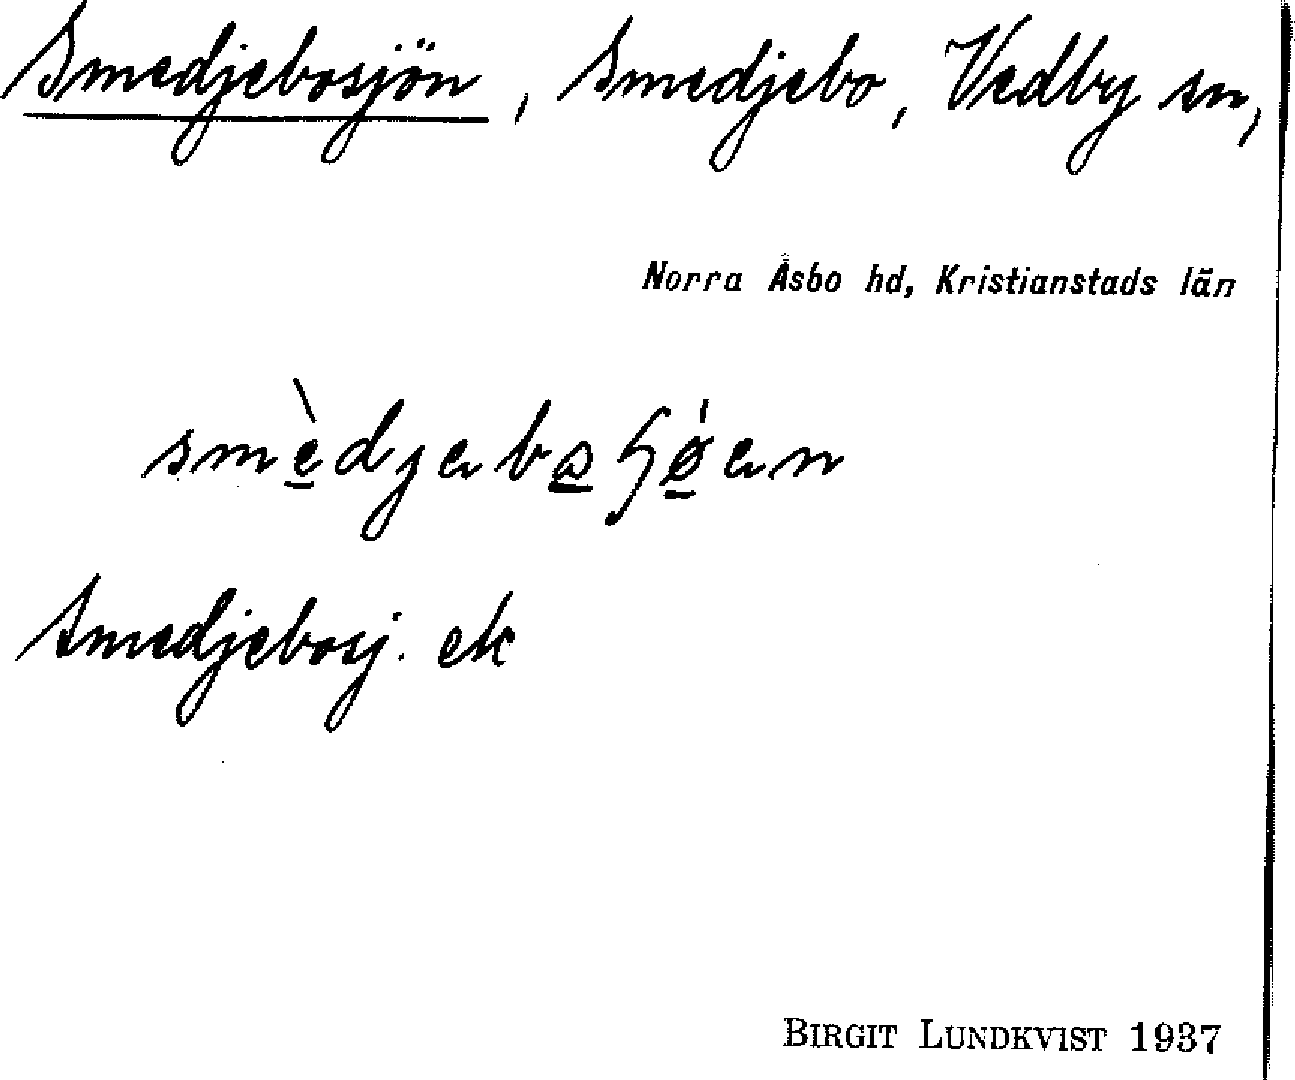 Smedjebosjön, Smedjebo, Vedby sn,
Norra Åsbo hd, Kristianstads län
Smedjebosj. ek
BIRGIT LUNDKVIST 1937